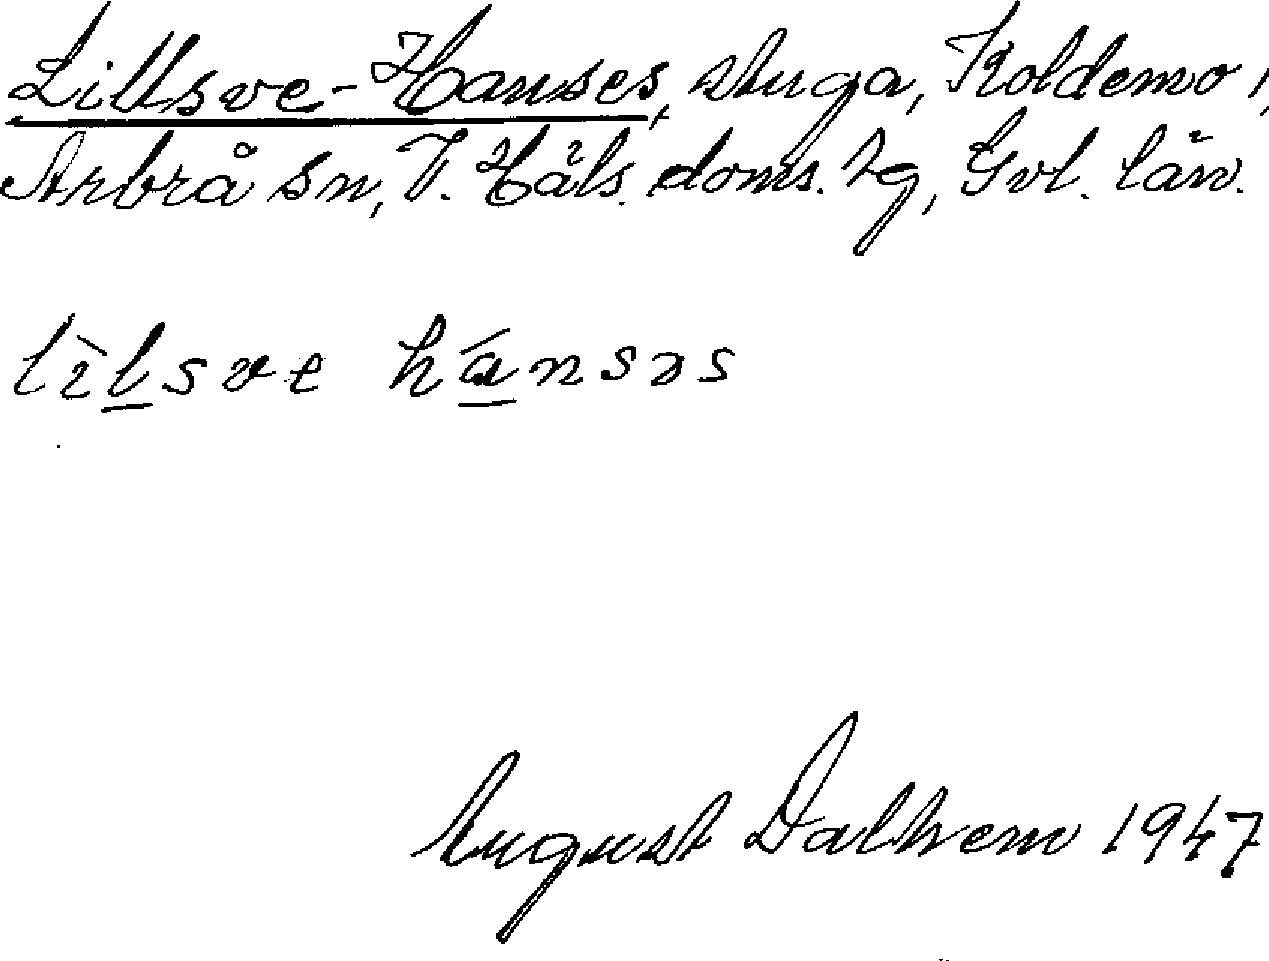 Lillsve-Hanses, stuga, Koldemo 1,
Arbrå sn, V. Häls. doms. tg, Gvl. län.
lìlsve hánsɘs
August Dalhem 1947